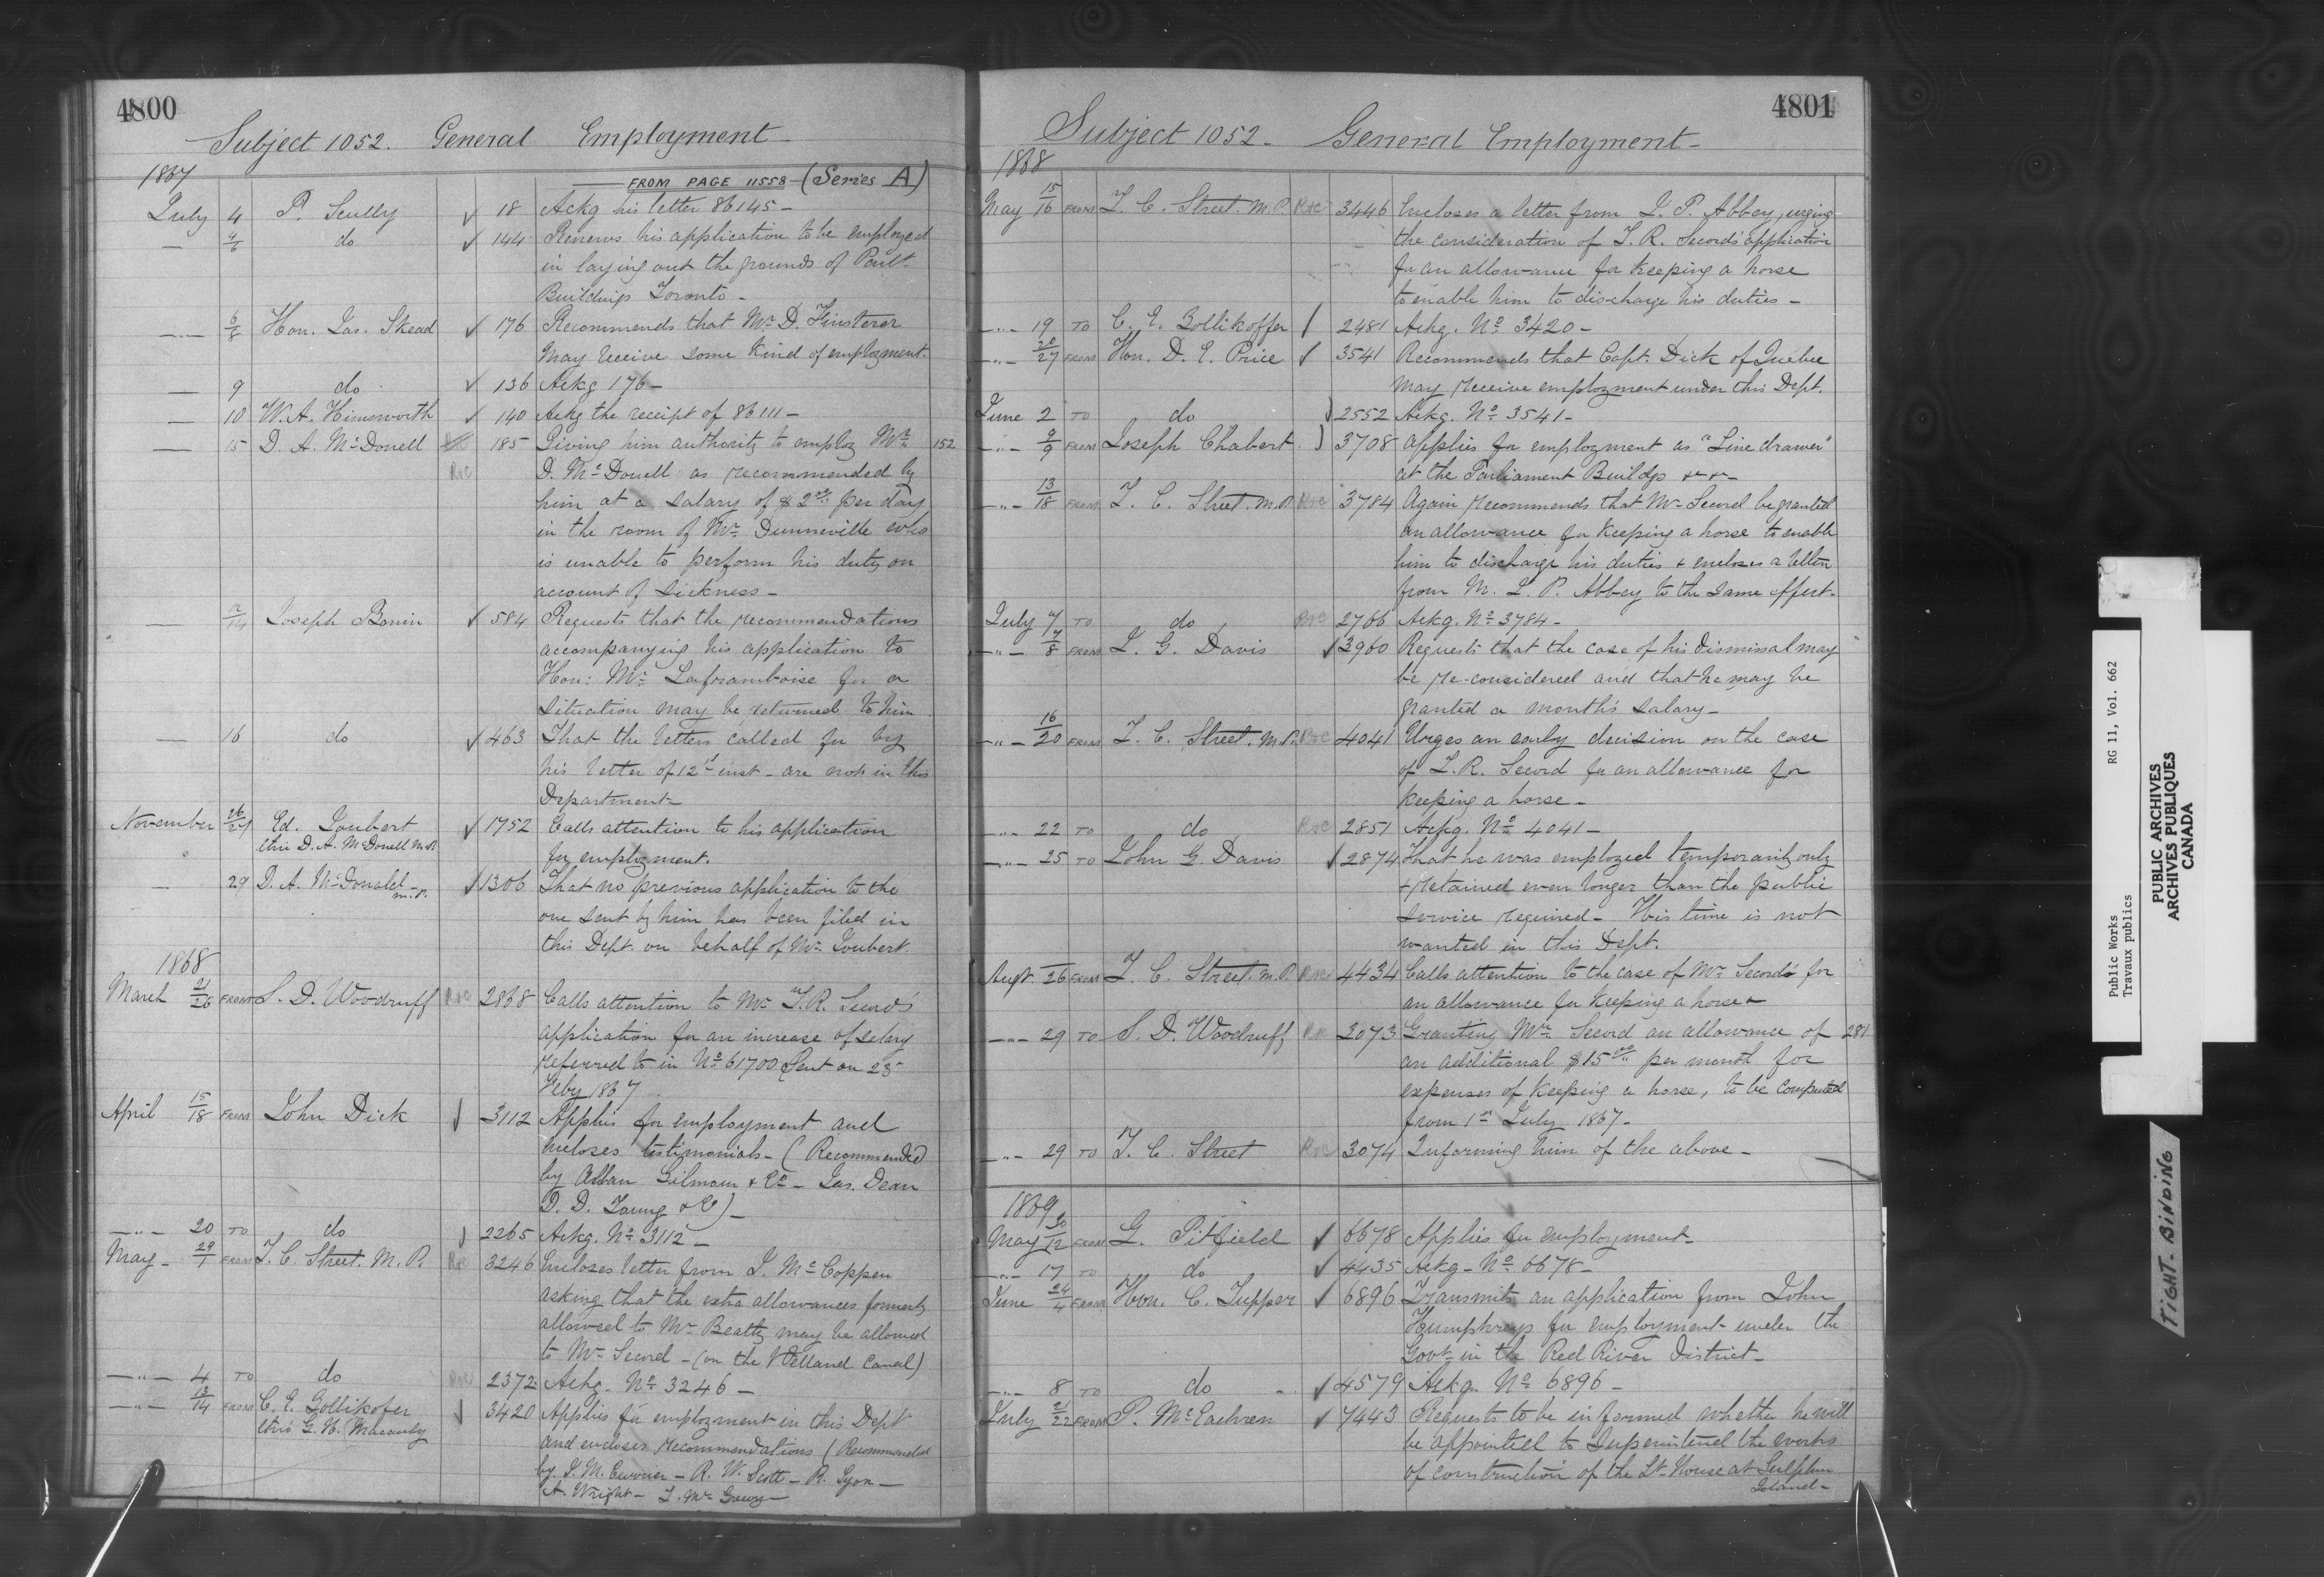 4800
Subject 1052. General Employment
1867
FROM PAGE 11558 (Series A)
July 4 P. Scully ✓ 18 Ackg his letter 86145 -
— 4/6 do ✓ 144 Renews his application to be employed
in laying out the grounds of Parlt
Buildings Toronto -
— 6/8 Hon. Jas. Skead ✓ 176 Recommends that Mr D. Finsterer
may receive some kind of employment.
— 9 do ✓ 136 Ackg 176 -
— 10 W. A. Himsworth ✓ 140 Ackg the receipt of 86111 -
— 15 D. A. McDonell 185 Giving him authority to employ Mr 152
D. McDonell as recommended by
him at a salary of $2.00 per day
in the room of Mr Dunneville who
is unable to perform his duty on
account of sickness -
— 12/14 Joseph Bonin ✓ 584 Requests that the recommendations
accompanying his application to
Hon: Mr Laframboise for a
situation may be returned to him
— 16 do ✓ 463 That the letters called for by
his letter of 12th inst - are not in this
Department
November 26/27 Ed. Joubert ✓ 1752 Calls attention to his application
thro D. A. McDonell M.P.
for employment.
— 29 D. A. McDonald M.P. ✓ 1306 That no previous application to the
one sent by him has been filed in
this Dept. on behalf of Mr Joubert.
1868
March 21/26 FROM S. D. Woodruff R&C 2868 Calls attention to Mr J. R. Secord's
application for an increase of salary
referred to in No 61700 Sent on 25
Feby 1867
April 15/18 FROM John Dick ✓ 3112 Applies for employment and
incloses testimonials - (Recommended
by Allan Gilmour & Co - Jas. Dean
D. D. Young & Co) -
— " — 20 TO do ✓ 2265 Ackg. No 3112 -
May - 29/1 FROM T. C. Street. M.P. R&C 3246 Incloses letter from J. McCoppen
asking that the extra allowances formerly
allowed to Mr Beatty may be allowed
to Mr Secord - (on the Welland Canal)
— " — 4 TO do R&C 2372 Ackg. No 3246 -
— " — 13/14 FROM C. E. Zollikofer ✓ 3420 Applies for employment in this Dept
thro' G. H. Macaulay
and encloses recommendations (Recommended
by J. M. Currier - R. W. Scott - R. Lyon -
A. Wright - J. McGreevy -
4801
Subject 1052 - General Employment -
1868
May 15/16 FROM T. C. Street. M.P. R&C 3446 Incloses a letter from J. P. Abbey, urging
the consideration of J. R. Secord's application
for an allowance for keeping a horse
to enable him to discharge his duties -
— " — 19 TO C. E. Zollikoffer ✓ 2481 Ackg. No 3420 -
— " — 20/27 FROM Hon. D. E. Price ✓ 3541 Recommends that Capt. Dick of Quebec
may receive employment under this Dept.
June 2 TO do ✓ 2552 Ackg. No 3541 -
— " — 9/9 FROM Joseph Chabert ✓ 3708 Applies for employment as "Line drawer"
at the Parliament Buildgs
— " — 13/18 FROM T. C. Street. M.P. R&C 3784 Again recommends that Mr Secord be granted
an allowance for keeping a horse to enable
him to discharge his duties & encloses a letter
from M. J. P. Abbey to the same effect.
July 7 TO do R&C 2766 Ackg. No 3784 -
— " — 7/8 FROM J. G. Davis ✓ 3960 Requests that the case of his dismissal may
be re-considered and that he may be
granted a month's salary -
— " — 16/20 FROM T. C. Street. M.P. R&C 4041 Urges an early decision on the case
of J. R. Secord for an allowance for
keeping a horse -
— " — 22 TO do R&C 2851 Ackg. No 4041 -
— " — 25 TO John G. Davis ✓ 2874 That he was employed temporarily only
& retained even longer than the public
service required - His time is not
wanted in this Dept.
Augt. 26 FROM T. C. Street. M.P. R&C 4434 Calls attention to the case of Mr Secord's for
an allowance for keeping a horse -
— " — 29 TO S. D. Woodruff R&C 3073 Granting Mr Secord an allowance of 281
an additional $15.00 per month for
expenses of keeping a horse, to be computed
from 1st July 1867 -
— " — 29 TO T. C. Street R&C 3074 Informing him of the above -
1869
May 30/12 FROM G. Pitfield ✓ 6678 Applies for employment -
— " — 17 TO do ✓ 4435 Ackg - No 6678 -
June 24/4 FROM Hon. C. Tupper ✓ 6896 Transmits an application from John
Humphreys for employment under the
Govt in the Red River District -
— " — 8 TO do ✓ 4579 Ackg. No 6896 -
July 21/22 FROM P. McEachren ✓ 7443 Requests to be informed whether he will
be appointed to superintend the works
of construction of the Lt. House at Sulphur
Island -
Public Works RG 11, Vol. 662
Travaux publics
PUBLIC ARCHIVES
ARCHIVES PUBLIQUES
CANADA
TIGHT BINDING